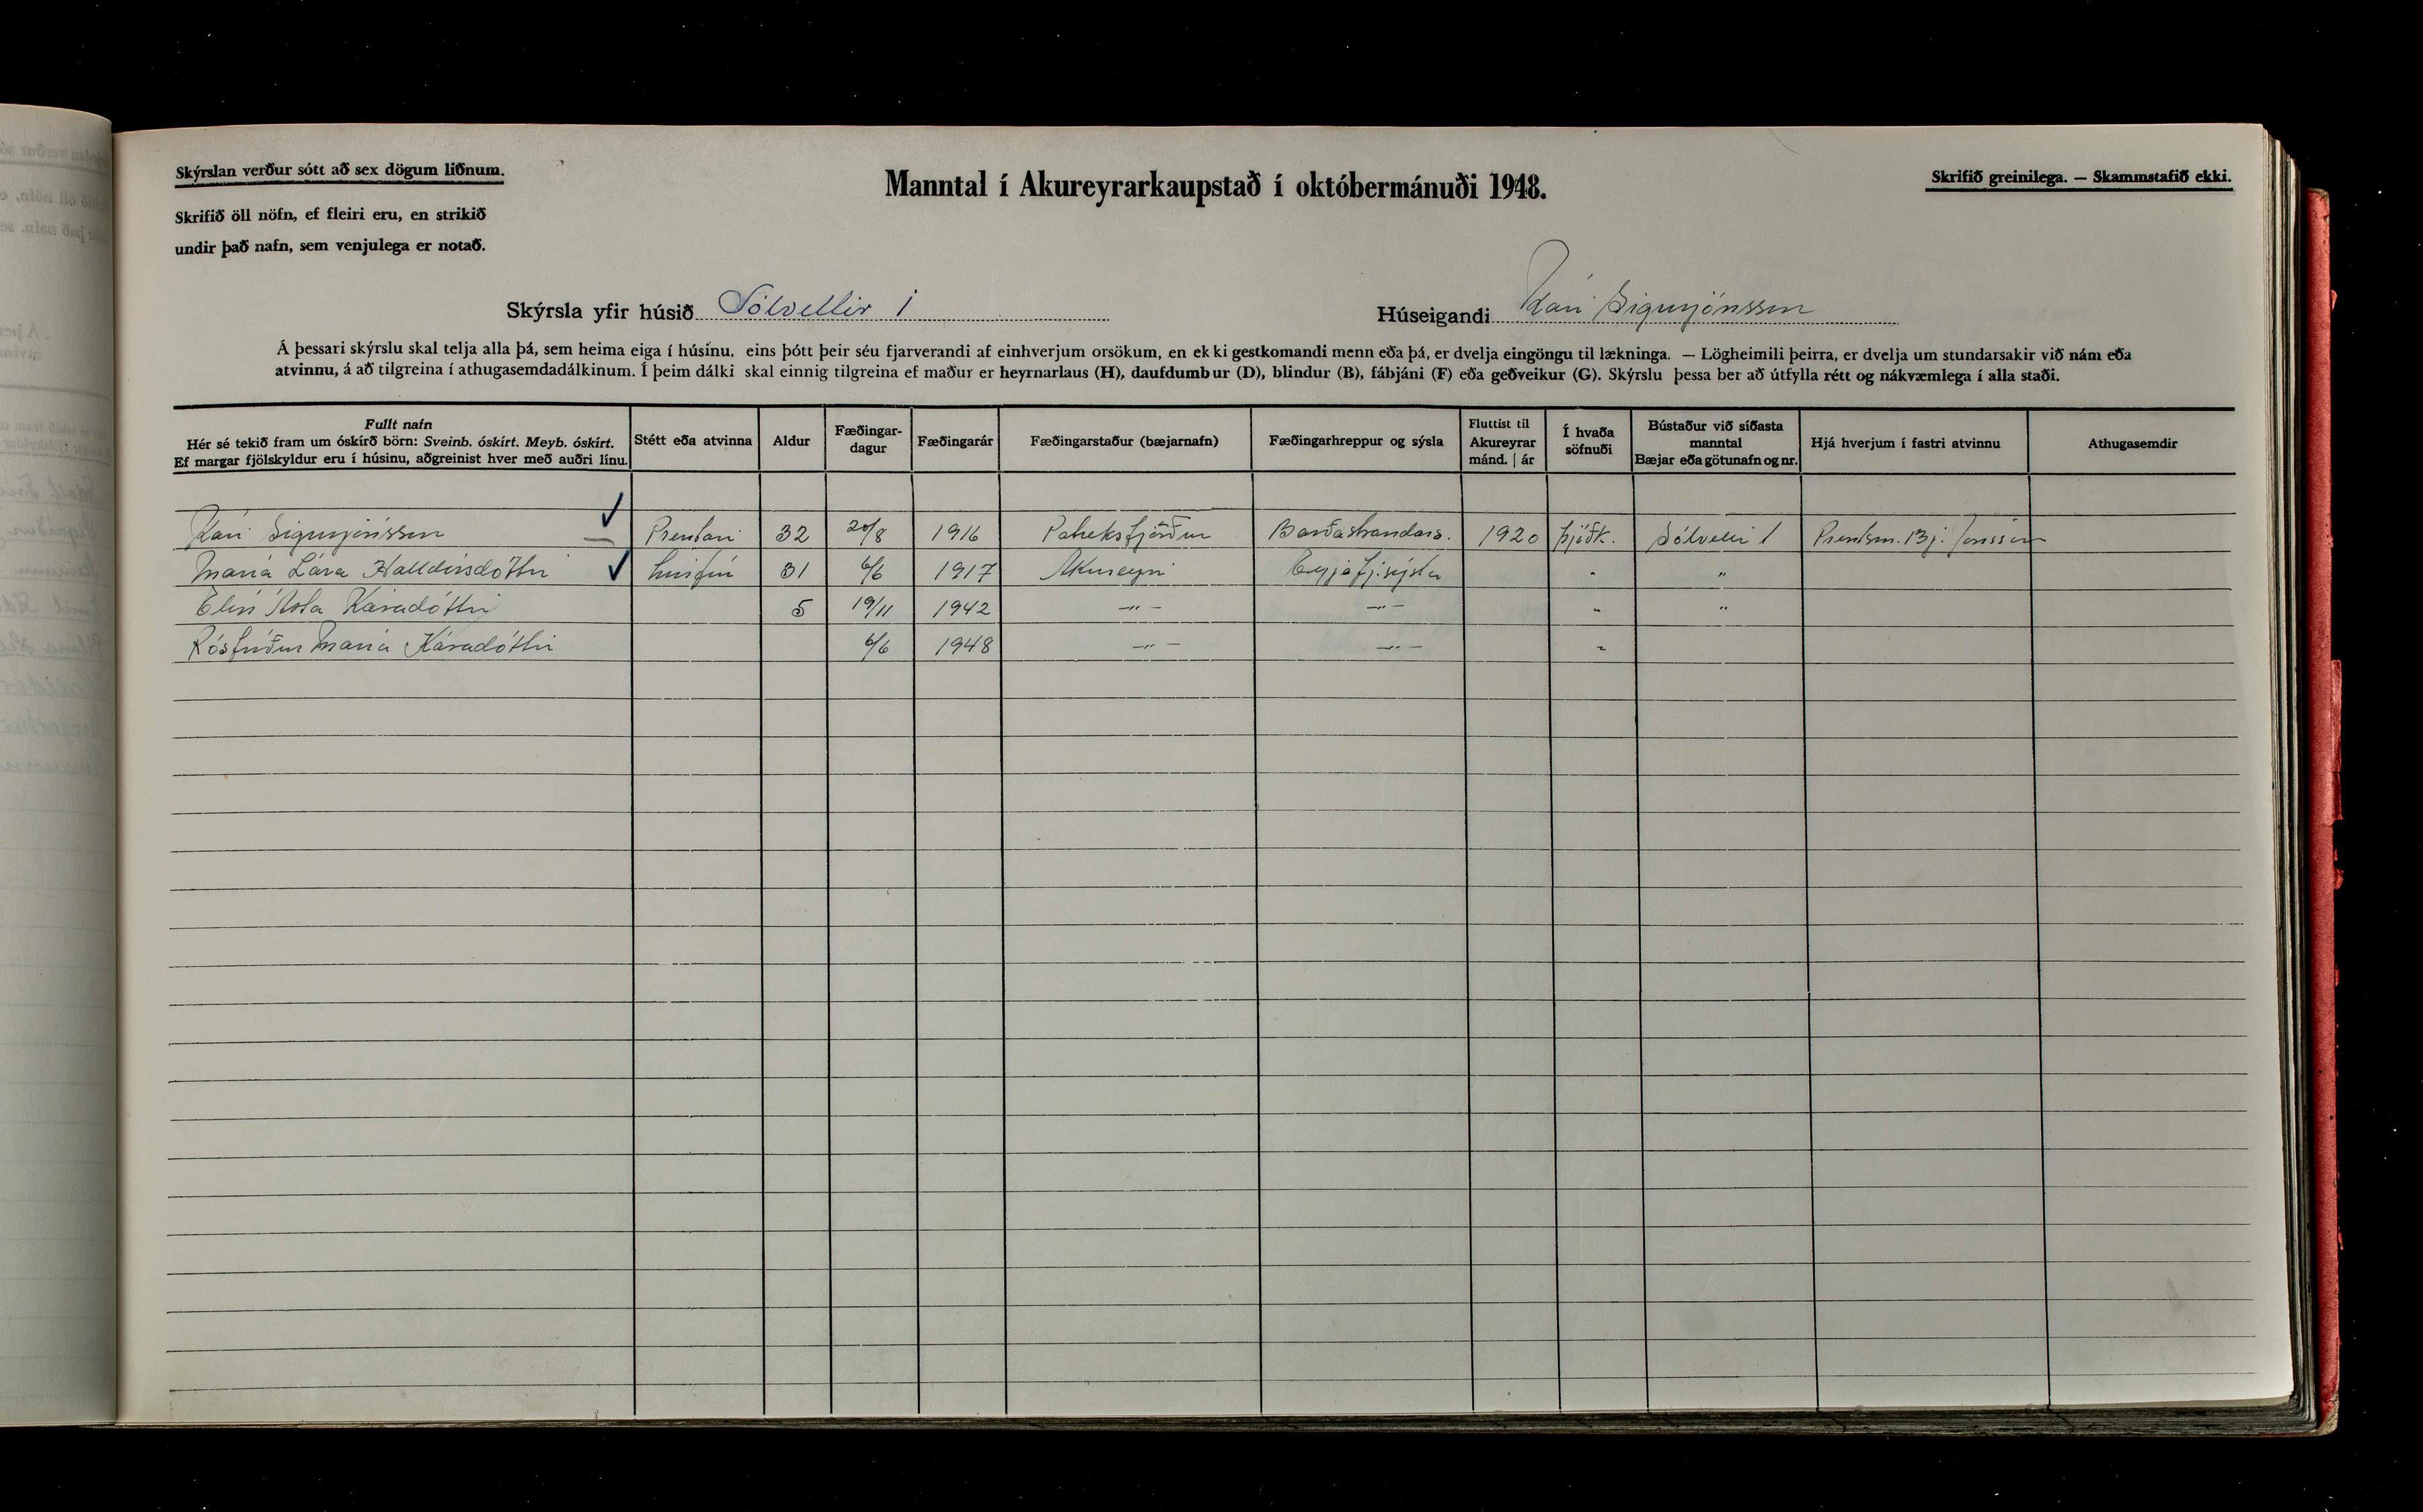 Skýrslan verður sótt að sex dögum liðnum.
Skrifið öll nöfn, ef fleiri eru, en strikið
undir það nafn, sem venjulega er notað.
Manntal í Akureyrarkaupstað í októbermánuði 1948.
Skrifið greinilega. — Skammstafið ekki.
Skýrsla yfir húsið Sólvellir 1
Húseigandi Kári Sigurjónsson
Á þessari skýrslu skal telja alla þá, sem heima eiga í húsinu. eins þótt þeir séu fjarverandi af einhverjum orsökum, en ekki gestkomandi menn eða þá, er dvelja eingöngu til lækninga. — Lögheimili þeirra, er dvelja um stundarsakir við nám eða
atvinnu, á að tilgreina í athugasemdadálkinum. Í þeim dálki skal einnig tilgreina ef maður er heyrnarlaus (H), daufdumbur (D), blindur (B), fábjáni (F) eða geðveikur (G). Skýrslu þessa ber að útfylla rétt og nákvæmlega í alla staði.
Fullt nafn
Hér sé tekið fram um óskírð börn: Sveinb. óskírt. Meyb. óskírt.
Ef margar fjölskyldur eru í húsinu, aðgreinist hver með auðri línu.
Stétt eða atvinna
Aldur
Fæðingar-
dagur
Fæðingarár
Fæðingarstaður (bæjarnafn)
Fæðingarhreppur og sýsla
Fluttist til
Akureyrar
mánd. | ár
Í hvaða
söfnuði
Bústaður við síðasta
manntal
Bæjar eða götunafn og nr.
Hjá hverjum í fastri atvinnu
Athugasemdir
Kári Sigurjónsson ✓ Prentari 32 20/8 1916 Patreksfjörður Barðastrandars. 1920 Þjóðk. Sólvellir 1 Prentsm. Bj. Jónssonar
María Lára Halldórsdóttir ✓ húsfrú 31 6/6 1917 Akureyri Eyjafj.sýslu " "
Elín Ásta Káradóttir 5 19/11 1942 —"— —"— " "
Rósfríður María Káradóttir 6/6 1948 —"— —"— "